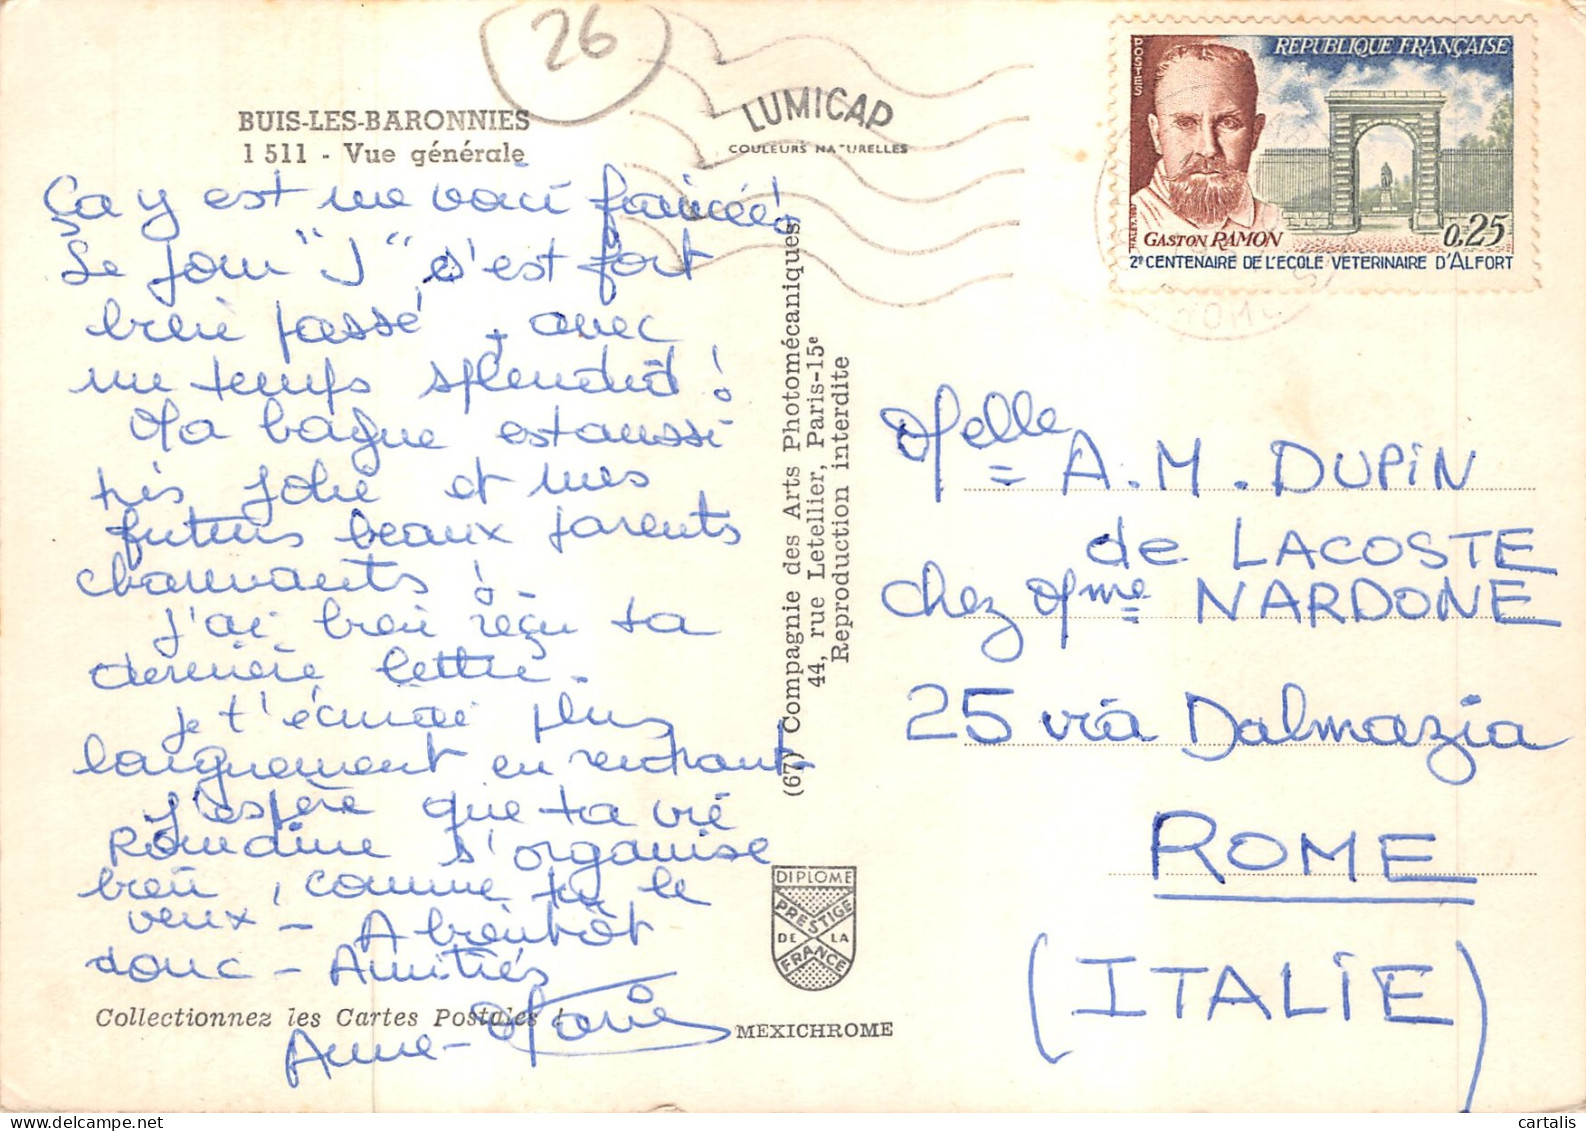 26
BUIS-LES-BARONNIES
1 511 - Vue générale
LUMICAP
COULEURS NATURELLES
Ça y est me voici fiancée!
Le jour "J" s'est fort
bien passé, avec
un temps splendid !
Ma bague est aussi
très jolie et mes
futurs beaux parents
charmants !
J'ai bien reçu ta
dernière lettre.
je t'écrirai plus
longuement en rentrant
J'espère que ta vie
Romaine s'organise
bien, comme tu le
veux - A bientôt
donc - Amitiés
Anne-Marie
Collectionnez les Cartes Postales !
(67) Compagnie des Arts Photomécaniques
44, rue Letellier, Paris-15e
Reproduction interdite
DIPLOME
PRESTIGE
DE LA
FRANCE
MEXICHROME
POSTES
REPUBLIQUE FRANÇAISE
HALEY.1967
GASTON RAMON
0,25
2e CENTENAIRE DE L'ECOLE VETERINAIRE D'ALFORT
Melle A.M. DUPIN
de LACOSTE
chez Mme NARDONE
25 via Dalmazia
ROME
(ITALIE)
cartalis